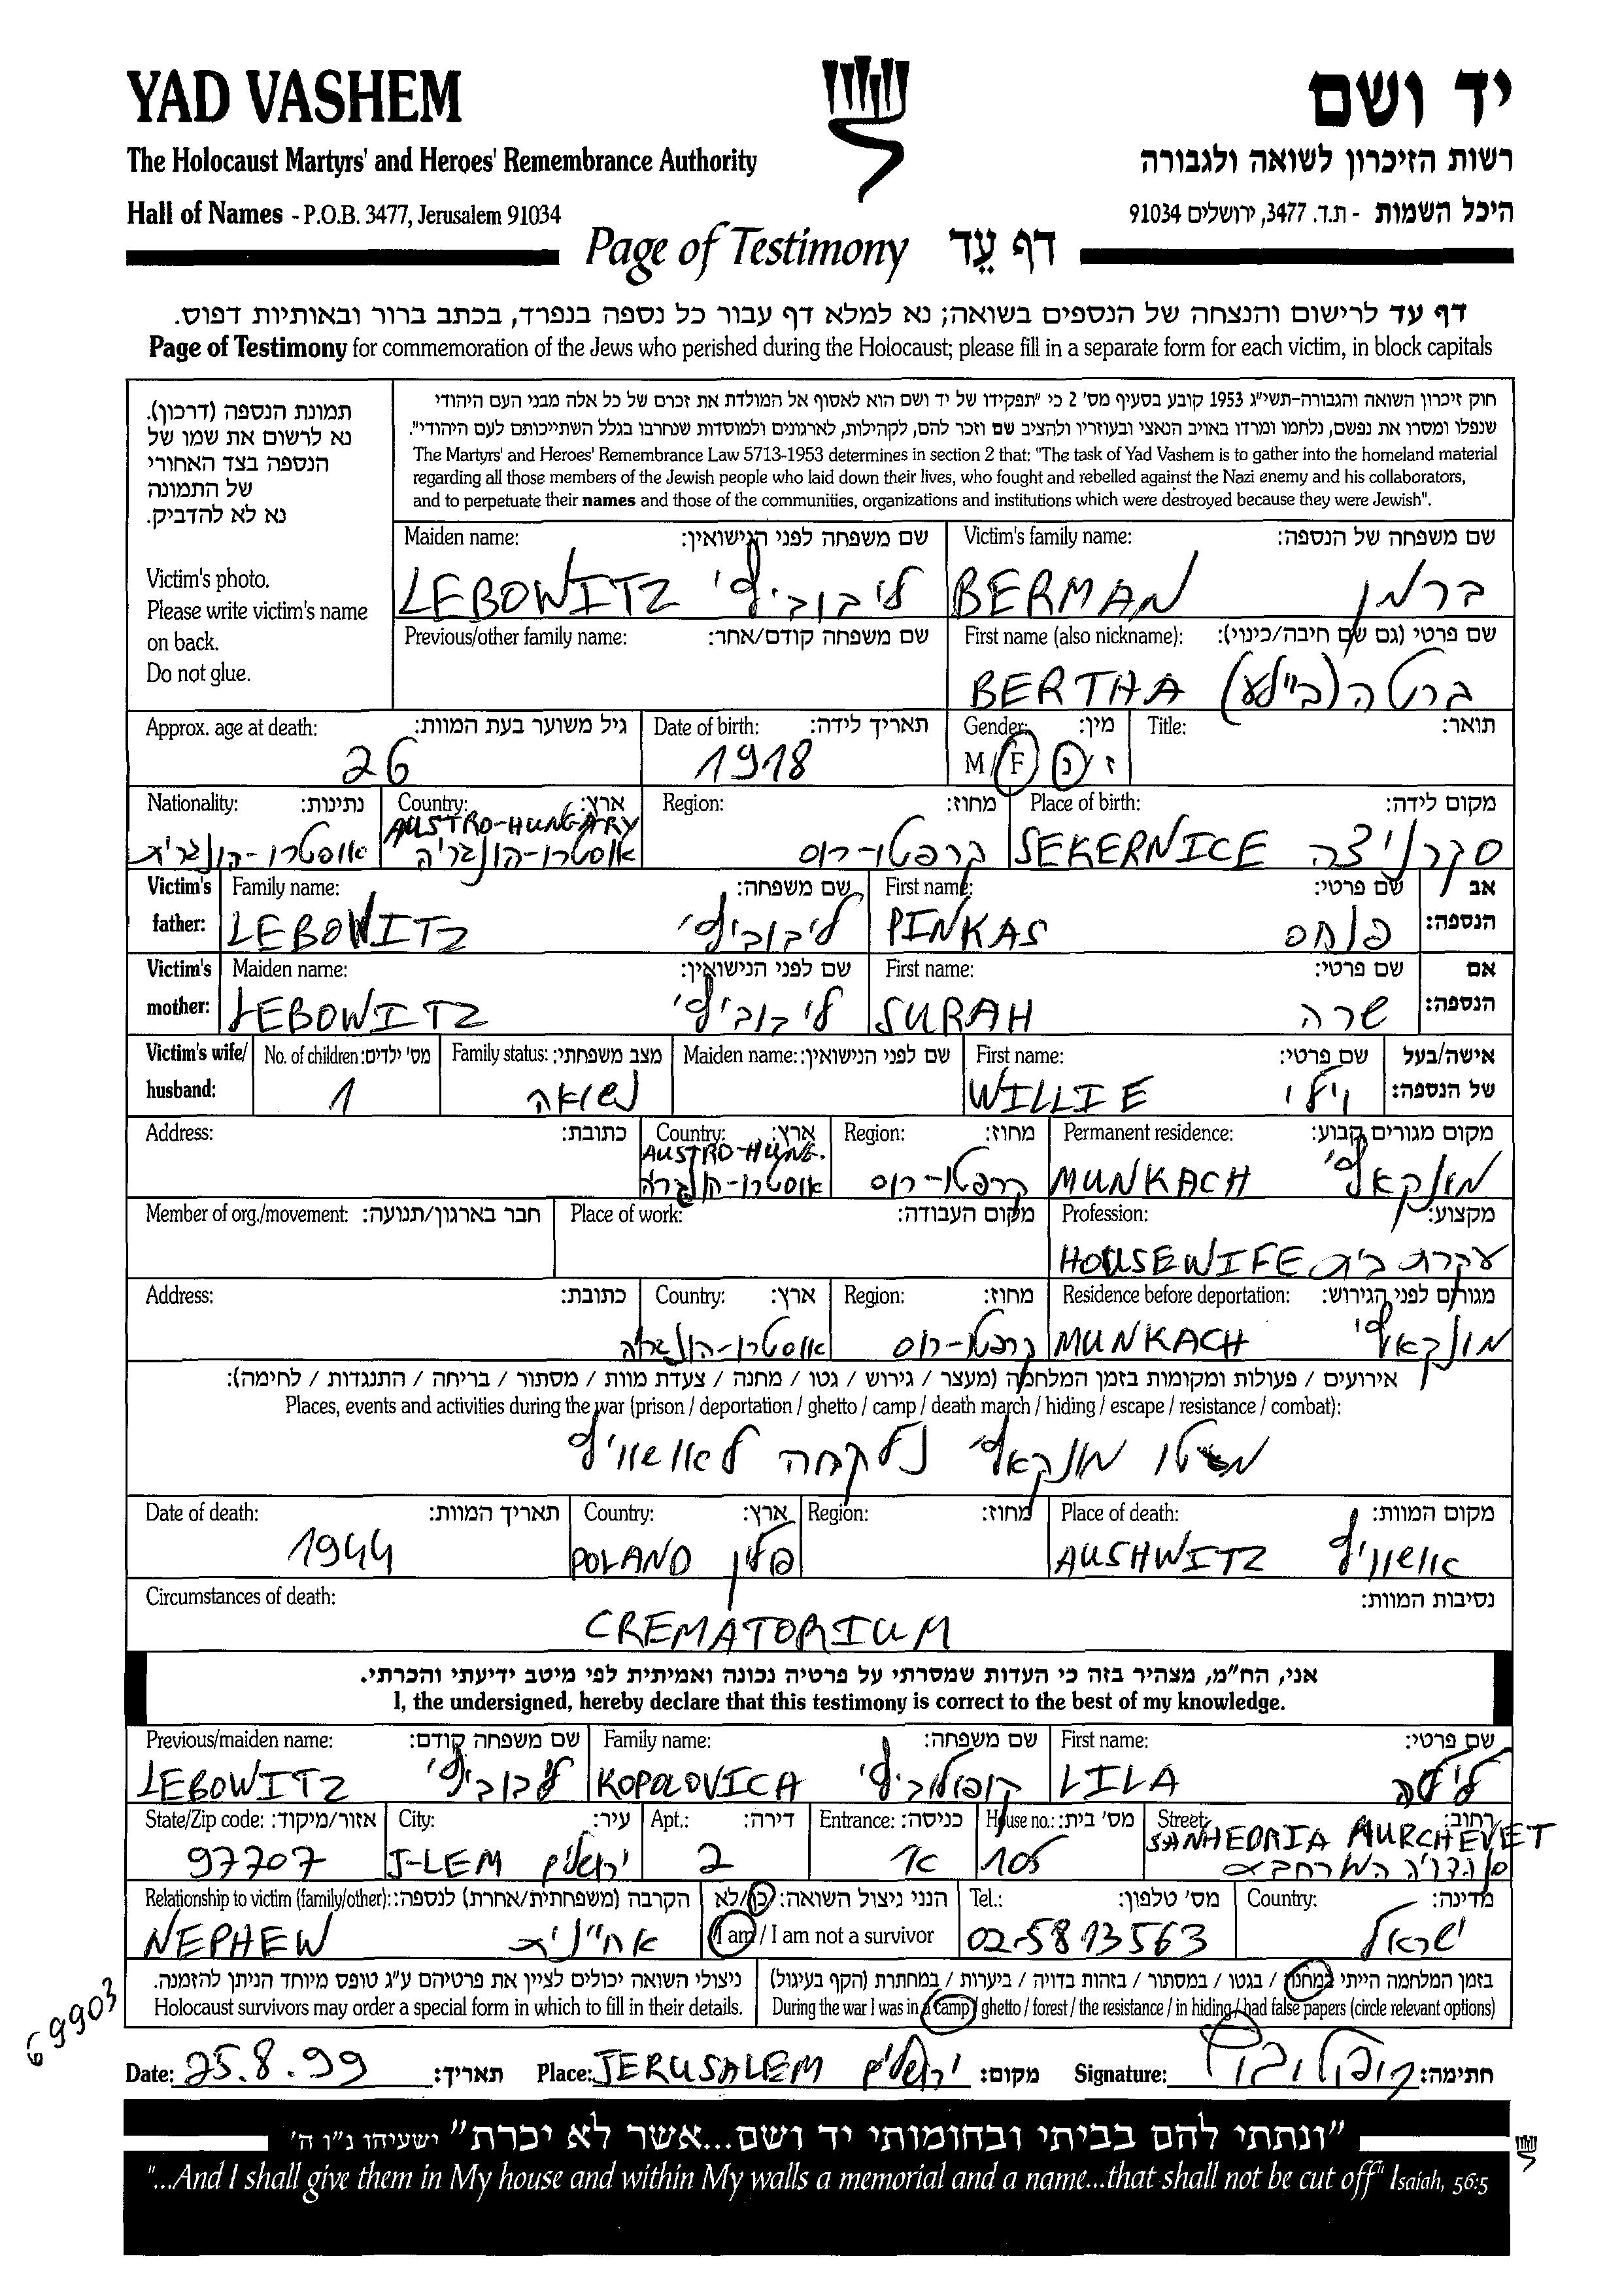 YAD VASHEM
יד ושם
The Holocaust Martyrs' and Heroes' Remembrance Authority
רשות הזיכרון לשואה ולגבורה
Hall of Names - P.O.B. 3477, Jerusalem 91034
היכל השמות - ת.ד. 3477, ירושלים 91034
Page of Testimony דף עֵד
דף עד לרישום והנצחה של הנספים בשואה; נא למלא דף עבור כל נספה בנפרד, בכתב ברור ובאותיות דפוס.
Page of Testimony for commemoration of the Jews who perished during the Holocaust; please fill in a separate form for each victim, in block capitals
תמונת הנספה (דרכון).
נא לרשום את שמו של
הנספה בצד האחורי
של התמונה
נא לא להדביק.
Victim's photo.
Please write victim's name
on back.
Do not glue.
חוק זיכרון השואה והגבורה-תשי"ג 1953 קובע בסעיף מס' 2 כי "תפקידו של יד ושם הוא לאסוף אל המולדת את זכרם של כל אלה מבני העם היהודי
שנפלו ומסרו את נפשם, נלחמו ומרדו באויב הנאצי ובעוזריו ולהציב שם וזכר להם, לקהילות, לארגונים ולמוסדות שנחרבו בגלל השתייכותם לעם היהודי".
The Martyrs' and Heroes' Remembrance Law 5713-1953 determines in section 2 that: "The task of Yad Vashem is to gather into the homeland material
regarding all those members of the Jewish people who laid down their lives, who fought and rebelled against the Nazi enemy and his collaborators,
and to perpetuate their names and those of the communities, organizations and institutions which were destroyed because they were Jewish".
Maiden name: שם משפחה לפני הנישואין: Victim's family name: שם משפחה של הנספה:
LEBOWITZ ליבוביץ' BERMAN ברמן
Previous/other family name: שם משפחה קודם/אחר: First name (also nickname): שם פרטי (גם שם חיבה/כינוי):
BERTHA ברטה (ביילע)
Approx. age at death: גיל משוער בעת המוות: Date of birth: תאריך לידה: Gender: מין: Title: תואר:
26 1918 M / F ז / נ
Nationality: נתינות: Country: ארץ: Region: מחוז: Place of birth: מקום לידה:
AUSTRO-HUNGARY
אוסטרו-הונגרית אוסטרו-הונגריה קרפטו-רוס SEKERNICE סקרניצה
Victim's father: Family name: שם משפחה: First name: שם פרטי: אב הנספה:
LEBOWITZ ליבוביץ' PINKAS פנחס
Victim's mother: Maiden name: שם לפני הנישואין: First name: שם פרטי: אם הנספה:
LEBOWITZ ליבוביץ' SURAH שרה
Victim's wife/ husband: No. of children: מס' ילדים: Family status: מצב משפחתי: Maiden name: שם לפני הנישואין: First name: שם פרטי: אישה/בעל של הנספה:
1 נשואה WILLIE וילי
Address: כתובת: Country: ארץ: Region: מחוז: Permanent residence: מקום מגורים קבוע:
AUSTRO-HUNG.
אוסטרו-הונגריה קרפטו-רוס MUNKACH מונקאץ'
Member of org./movement: חבר בארגון/תנועה: Place of work: מקום העבודה: Profession: מקצוע:
HOUSEWIFE עקרת בית
Address: כתובת: Country: ארץ: Region: מחוז: Residence before deportation: מגורים לפני הגירוש:
אוסטרו-הונגריה קרפטו-רוס MUNKACH מונקאץ'
אירועים / פעולות ומקומות בזמן המלחמה (מעצר / גירוש / גטו / מחנה / צעדת מוות / מסתור / בריחה / התנגדות / לחימה):
Places, events and activities during the war (prison / deportation / ghetto / camp / death march / hiding / escape / resistance / combat):
מגטו מונקאץ' נלקחה לאושוויץ
Date of death: תאריך המוות: Country: ארץ: Region: מחוז: Place of death: מקום המוות:
1944 POLAND פולין AUSHWITZ אושוויץ
Circumstances of death: נסיבות המוות:
CREMATORIUM
אני, הח"מ, מצהיר בזה כי העדות שמסרתי על פרטיה נכונה ואמיתית לפי מיטב ידיעתי והכרתי.
I, the undersigned, hereby declare that this testimony is correct to the best of my knowledge.
Previous/maiden name: שם משפחה קודם: Family name: שם משפחה: First name: שם פרטי:
LEBOWITZ ליבוביץ' KOPOLOVICH קופולוביץ' LILA לילה
State/Zip code: אזור/מיקוד: City: עיר: Apt.: דירה: Entrance: כניסה: House no.: מס' בית: Street: רחוב:
SANHEDRIA MURCHEVET
97707 J-LEM ירושלים 2 א1 105 סנהדריה המורחבת
Relationship to victim (family/other): הקרבה (משפחתית/אחרת) לנספה: הנני ניצול השואה: כן/לא Tel.: מס' טלפון: Country: מדינה:
NEPHEW אחיינית I am / I am not a survivor 02-5813563 ישראל
ניצולי השואה יכולים לציין את פרטיהם ע"ג טופס מיוחד הניתן להזמנה. בזמן המלחמה הייתי במחנה / בגטו / במסתור / בזהות בדויה / ביערות / במחתרת (הקף בעיגול)
Holocaust survivors may order a special form in which to fill in their details. During the war I was in a camp / ghetto / forest / the resistance / in hiding / had false papers (circle relevant options)
69903
Date: 25.8.99 תאריך: Place: JERUSALEM ירושלים מקום: Signature: קופולוביץ חתימה:
"ונתתי להם בביתי ובחומותי יד ושם...אשר לא יכרת" ישעיהו נ"ו ה'
"...And I shall give them in My house and within My walls a memorial and a name...that shall not be cut off" Isaiah, 56:5